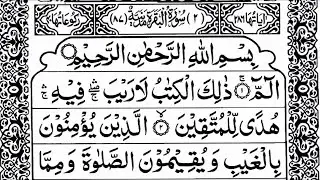 اٰیَاتُهَا ٢٨٦ (٢) سُوْرَةُ الْبَقَرَةِ مَدَنِيَّةٌ (٨٧) رُكُوْعَاتُهَا
بِسْمِ اللّٰهِ الرَّحْمٰنِ الرَّحِيْمِ
الٓمّٓ ۚ ١ ذٰلِكَ الْكِتٰبُ لَا رَيْبَ ۛ فِيْهِ ۛ
هُدًى لِّلْمُتَّقِيْنَ ۙ ٢ الَّذِيْنَ يُؤْمِنُوْنَ
بِالْغَيْبِ وَ يُقِيْمُوْنَ الصَّلٰوةَ وَ مِمَّا